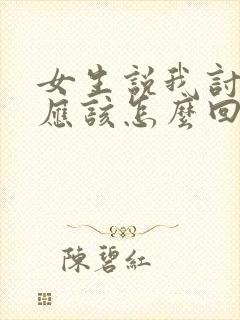 女生説我討
應該怎麼回
陳碧紅